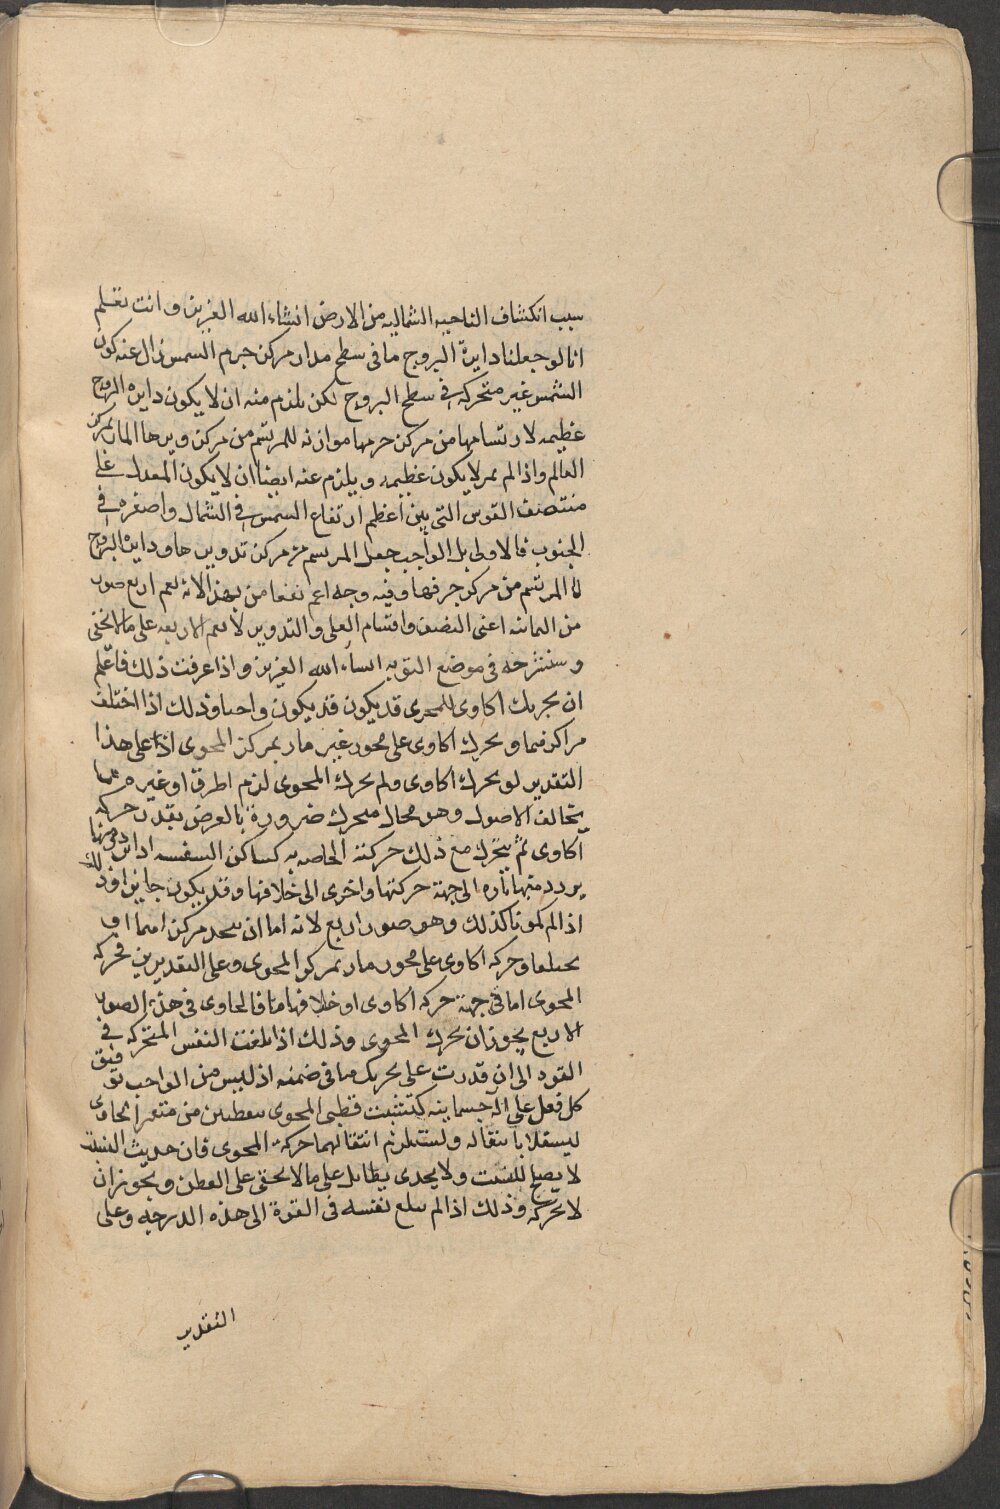 سبب انكشاف الناحيه الشماليه من الارض انشاء الله العزيز وانت تعلم
انا لو جعلنا دايرة البروج ما فى سطح مدار مركز جرم الشمس زال عنه كون
الشمس غير متحركه فى سطح البروج لكن يلزم منه ان لا يكون دايره البروج
عظيمه لارتسامها من مركز جرمها موازنه للمرتسم من مركز تدويرها المار بمركز
العالم واذا لم يمر لا يكون عظيمه ويلزم عنه ايضا ان لا يكون المعدل على
منتصف القوس التى بين اعظم ارتفاع الشمس فى الشمال واصغره فى
الجنوب فالاولى بل الواجب جعل المرتسم من مركز تدويرها ودايره البروج
لا المرتسم من مركز جرمها وفيه وجه اعم نفعا من هذا لانه يعم اربع صور
من الثمانيه اعنى النصف واقسام العلى والتدوير لا يعم الاربعه على ما لا يخفى
وسنشرحه فى موضع اليق به انشاء الله العزيز واذا عرفت ذلك فاعلم
ان تحريك الحاوى للمحوى قد يكون قد يكون واجبا وذلك اذا اختلف
مراكزهما وتحرك الحاوى على محور غير مار بمركز المحوى اذ على هذا
التقدير لو تحرك الحاوى ولم يحرك المحوى لزم الخرق او غيره مما
يخالف الاصول وهو محال فيحرك ضرورة بالعرض بقدر حركه
الحاوى ثم يتحرك مع ذلك حركته الخاصه به كساكن السفينه اذا
يردد فيها تاره الى جهة حركتها واخرى الى خلافها وقد يكون جايزا وذلك
اذا لم يكونا كذلك وهو صور اربع لانه اما ان يتحد مركزاهما او
يختلفا وحركه الحاوى على محور مار بمركز المحوى وعلى التقديرين فحركه
المحوى اما فى جهة حركه الحاوى او خلافها فالحاوى فى هذه الصور
الاربع يجوز ان يحرك المحوى وذلك اذا بلغت النفس المتحركه فى
القوه الى ان قدرت على تحريك ما فى ضمنه اذ ليس من الواجب توقف
كل فعل على آلة جسمانيه كتشبث قطبى المحوى بنقطتين من مقعر الحاوى
لينتقلا بانتقاله وليستلزم انتقالهما حركة المحوى فان حديث التشبث
لا يصلح للتشبث ولا يجدى بطائل على ما لا يخفى على الفطن ويجوز ان
لا يحركه وذلك اذا لم يبلغ نفسه فى القوة الى هذه الدرجه وعلى
التقدير